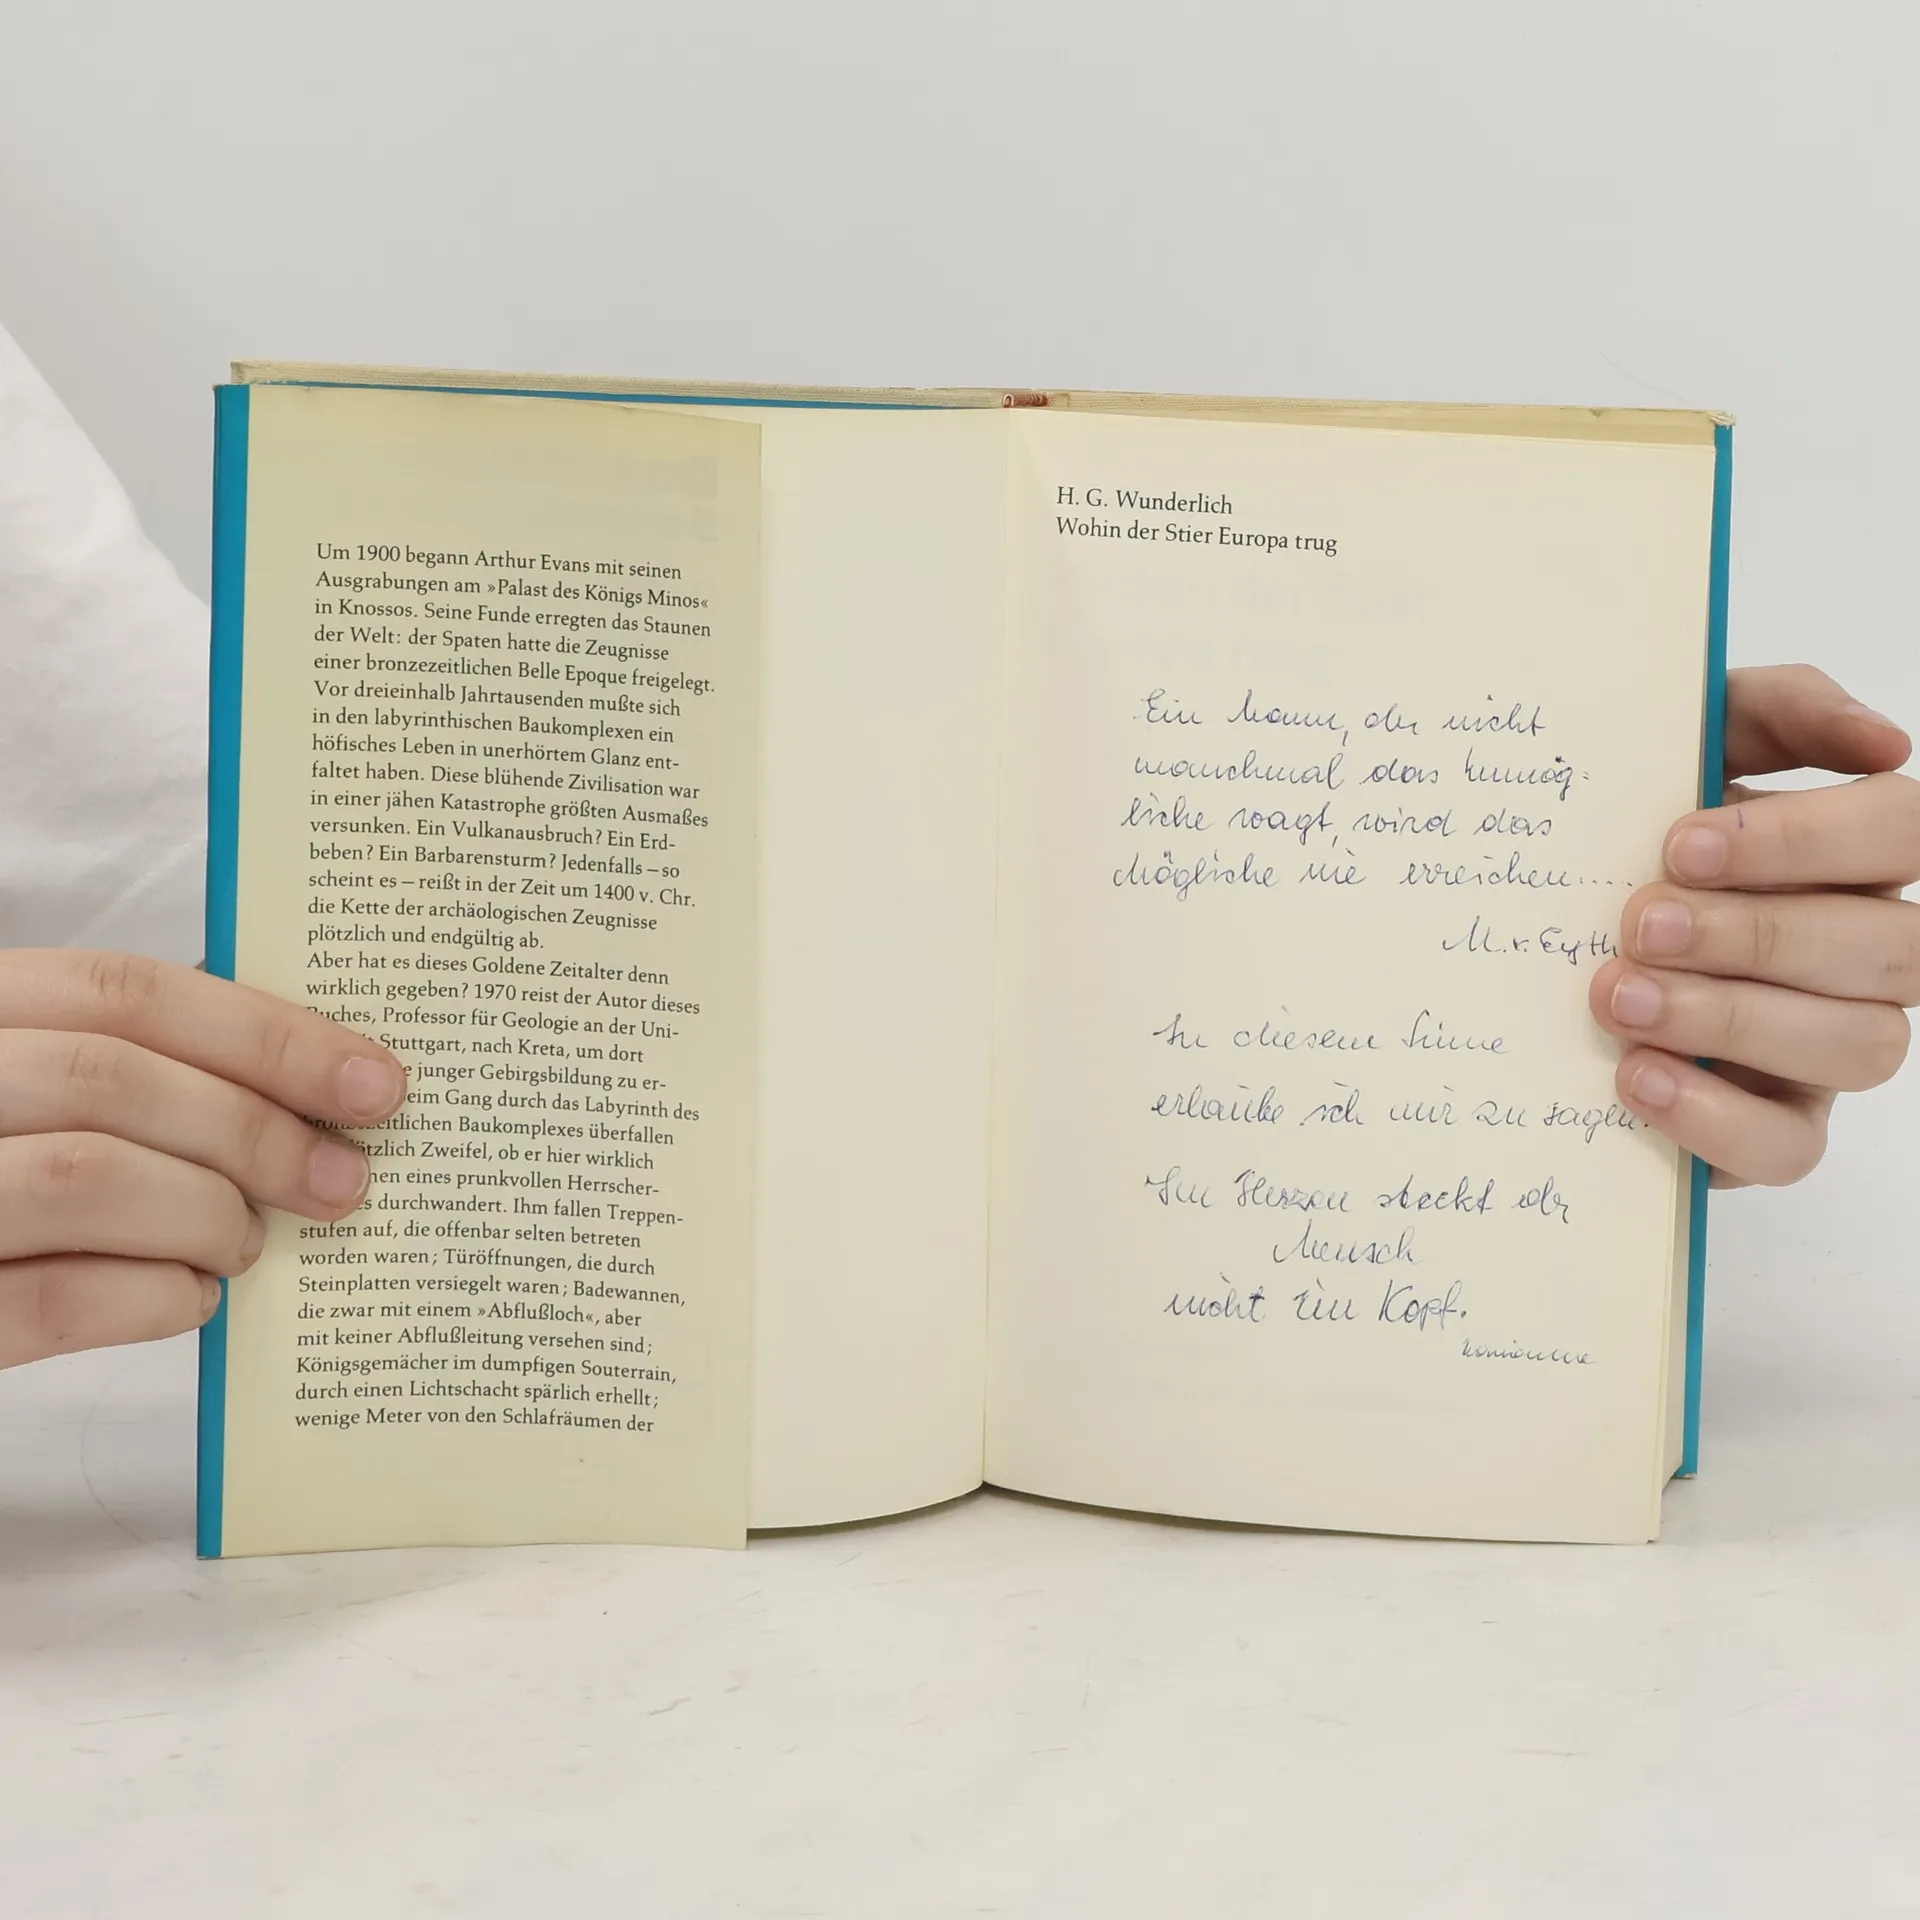 Um 1900 begann Arthur Evans mit seinen
Ausgrabungen am »Palast des Königs Minos«
in Knossos. Seine Funde erregten das Staunen
der Welt: der Spaten hatte die Zeugnisse
einer bronzezeitlichen Belle Epoque freigelegt.
Vor dreieinhalb Jahrtausenden mußte sich
in den labyrinthischen Baukomplexen ein
höfisches Leben in unerhörtem Glanz ent-
faltet haben. Diese blühende Zivilisation war
in einer jähen Katastrophe größten Ausmaßes
versunken. Ein Vulkanausbruch? Ein Erd-
beben? Ein Barbarensturm? Jedenfalls – so
scheint es – reißt in der Zeit um 1400 v. Chr.
die Kette der archäologischen Zeugnisse
plötzlich und endgültig ab.
Aber hat es dieses Goldene Zeitalter denn
wirklich gegeben? 1970 reist der Autor dieses
Buches, Professor für Geologie an der Uni-
Stuttgart, nach Kreta, um dort
junger Gebirgsbildung zu er-
Gang durch das Labyrinth des
Baukomplexes überfallen
Zweifel, ob er hier wirklich
eines prunkvollen Herrscher-
durchwandert. Ihm fallen Treppen-
stufen auf, die offenbar selten betreten
worden waren; Türöffnungen, die durch
Steinplatten versiegelt waren; Badewannen,
die zwar mit einem »Abflußloch«, aber
mit keiner Abflußleitung versehen sind;
Königsgemächer im dumpfigen Souterrain,
durch einen Lichtschacht spärlich erhellt;
wenige Meter von den Schlafräumen der
H. G. Wunderlich
Wohin der Stier Europa trug
Ein Mann, der nicht
manchmal das Unmög=
liche wagt, wird das
Mögliche nie erreichen....
M. v. Eyth
In diesem Sinne
erlaube ich mir zu sagen:
Im Herzen steckt der
Mensch
nicht im Kopf.